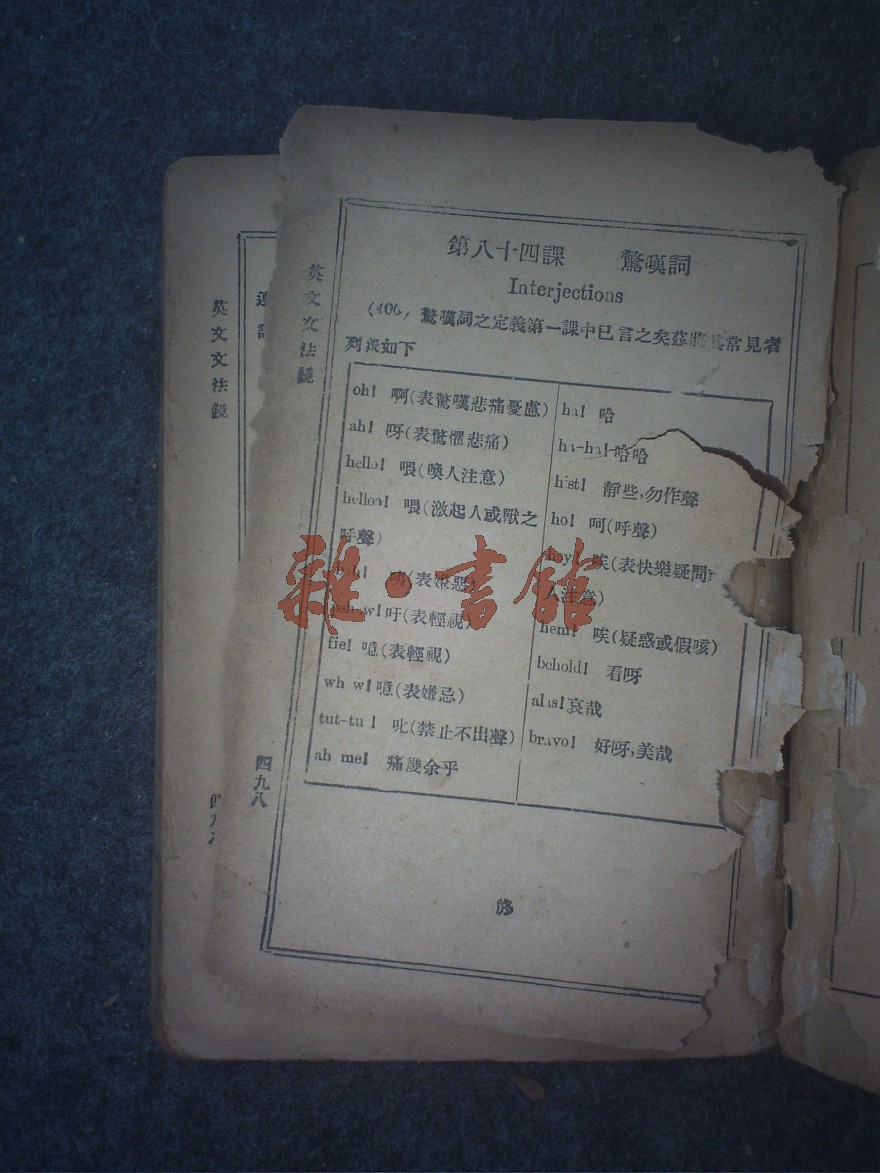 第八十四課　　驚嘆詞
Interjections
(406) 驚嘆詞之定義第一課中已言之矣茲將其常見者
列表如下
oh! 啊(表驚嘆悲痛憂慮)
ah! 呀(表驚懼悲痛)
hello! 喂(喚人注意)
helloa! 喂(激起人或獸之
呼聲)
(表嫌惡)
吁(表輕視)
fie! 噫(表輕視)
wh w! 噫(表嫌忌)
tut-tu ! 叱(禁止不出聲)
ah me! 痛殺余乎
ha! 哈
ha-ha! 哈哈
hist! 靜些,勿作聲
ho! 呵(呼聲)
唉(表快樂疑問
人注意)
hem! 唉(疑惑或假咳)
behold! 看呀
alas! 哀哉
bravo! 好呀,美哉
終
英文文法鏡
四九八
英文文法鏡
雜·書館